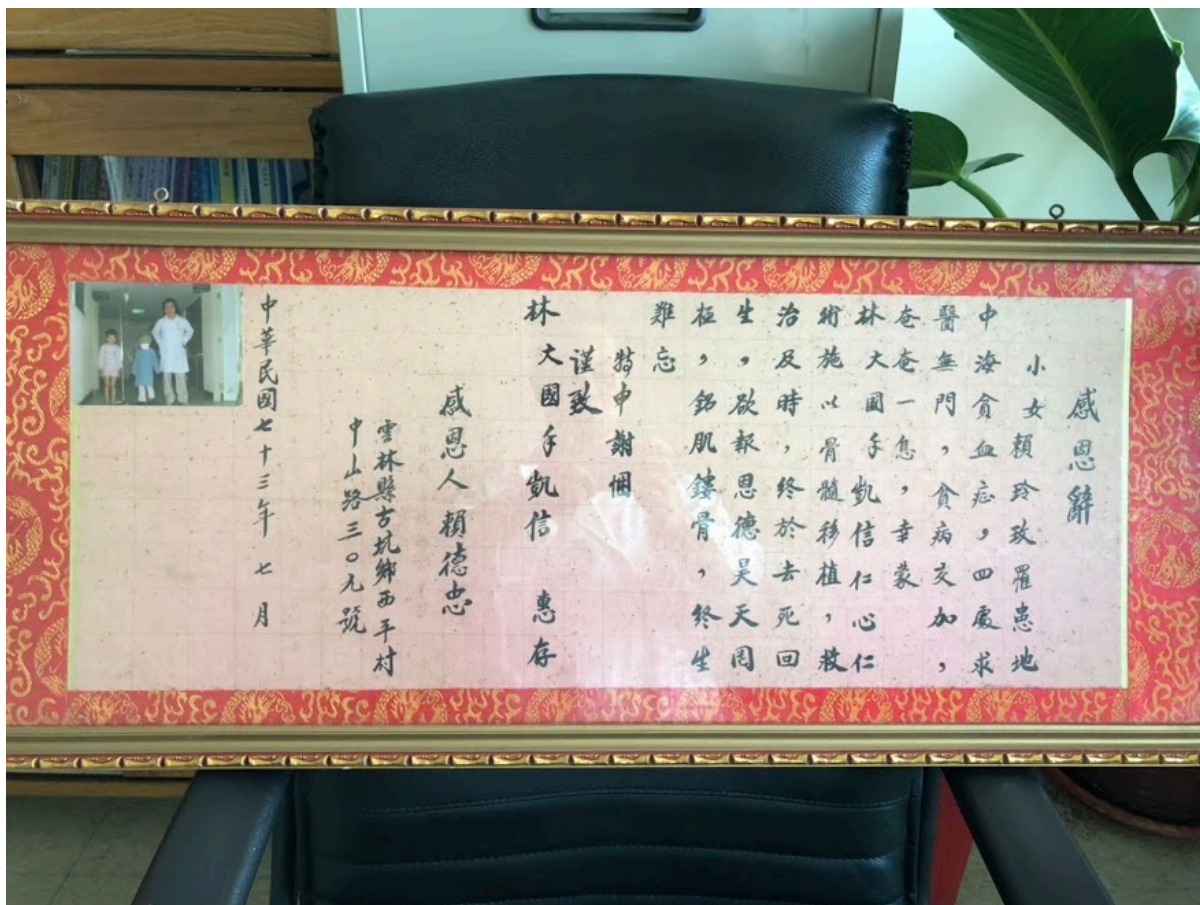 感恩辭
小女賴玲玫罹患地
中海貧血症，四處求
醫無門，貧病交加，
奄奄一息，幸蒙
林大國手凱信仁心仁
術施以骨髓移植，救
治及時，終於去死回
生，欲報恩德昊天罔
極，銘肌鏤骨，終生
難忘
特申謝悃
謹致
林大國手凱信 惠存
感恩人賴德忠
雲林縣古坑鄉西平村
中山路三〇九號
中華民國七十三年七月